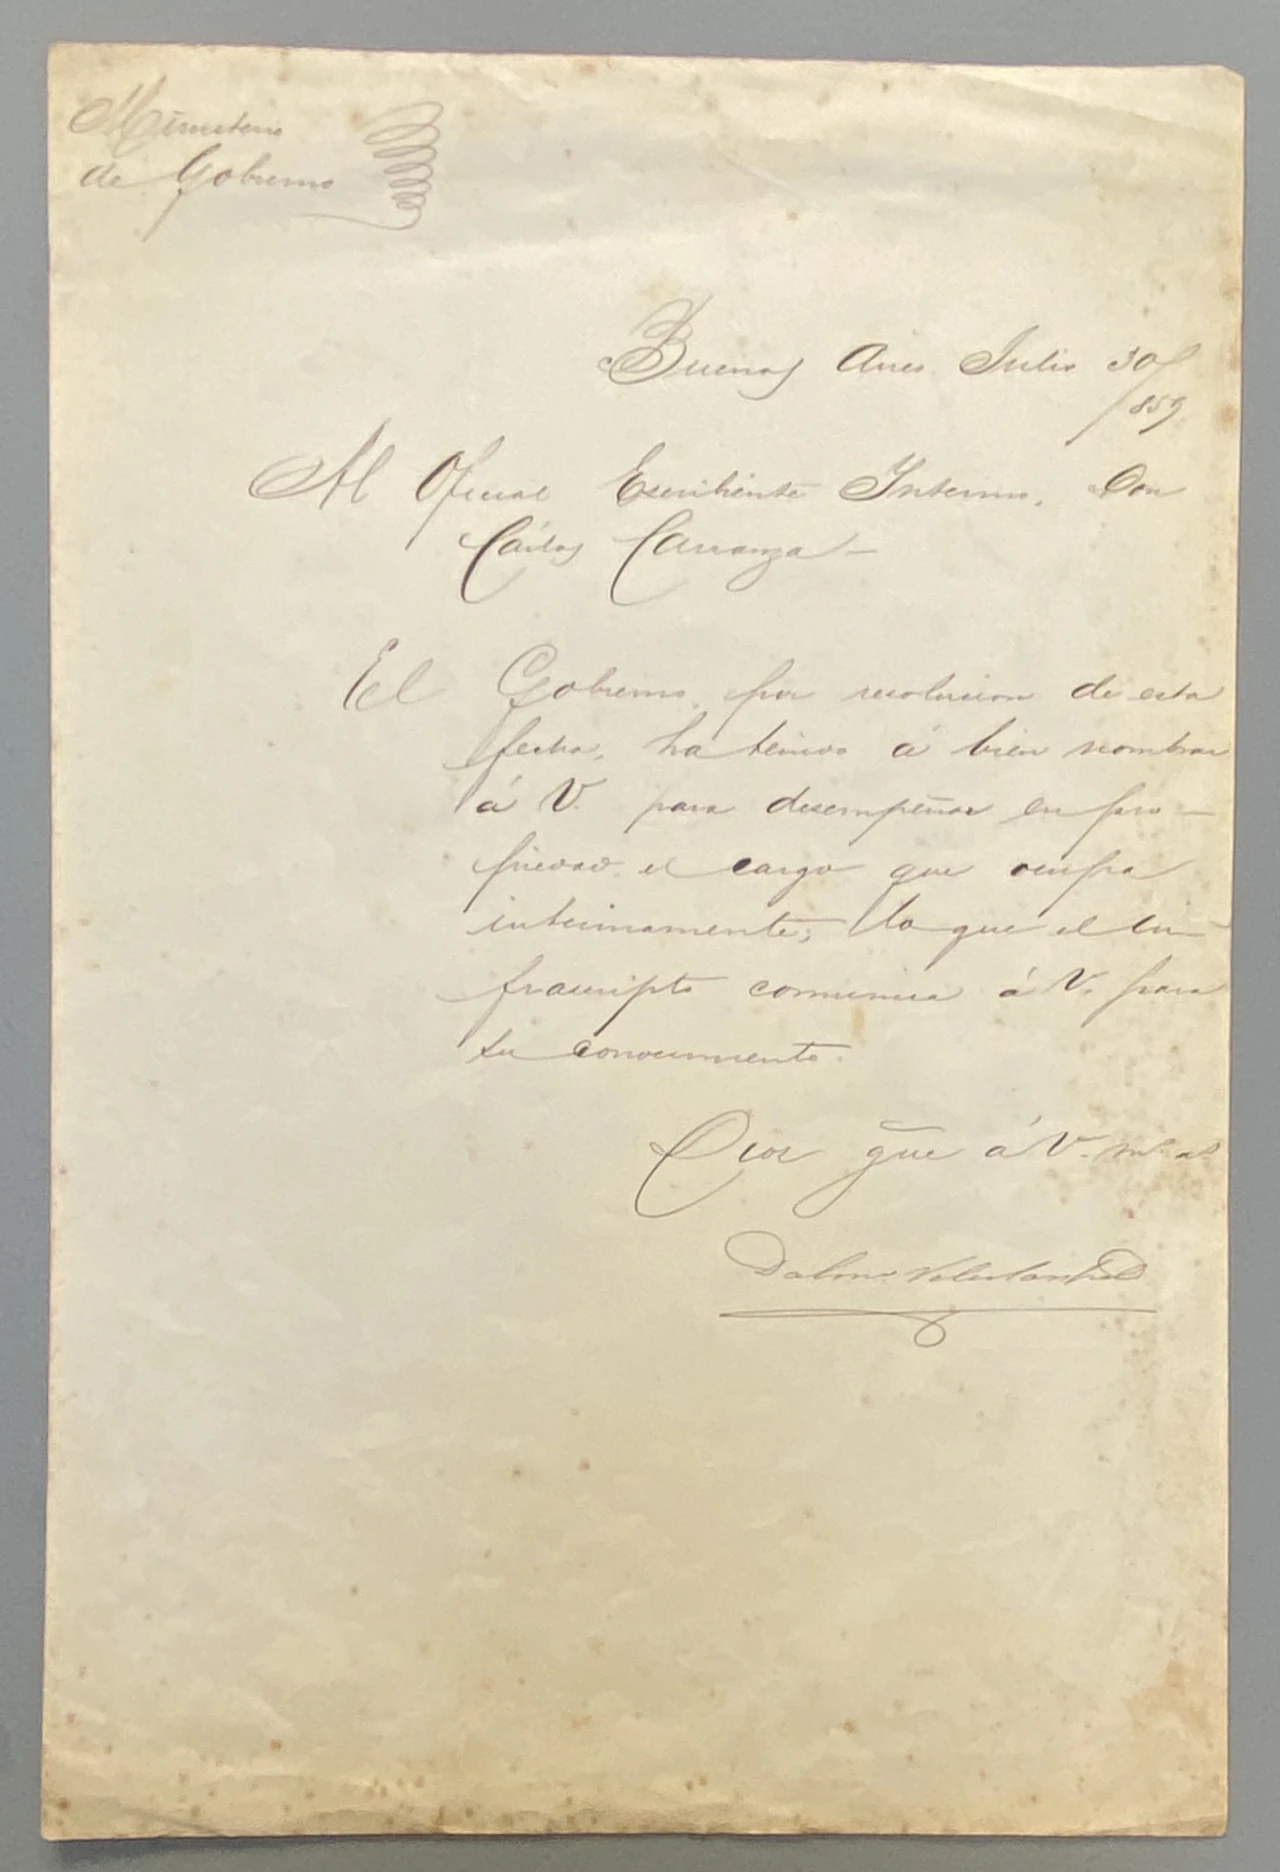 Ministerio
de Gobierno
Buenos Aires Julio 30/
/859
Al Oficial Escribiente Interino, Don
Cárlos Carranza —
El Gobierno, por resolucion de esta
fecha, ha tenido á bien nombrar
á V. para desempeñar en pro-
piedad el cargo que ocupa
interinamente; lo que el in-
frascripto comunica á V. para
su conocimiento.
Dios gũe á V. ms. as.
Dalmo. Velez Sarsfield